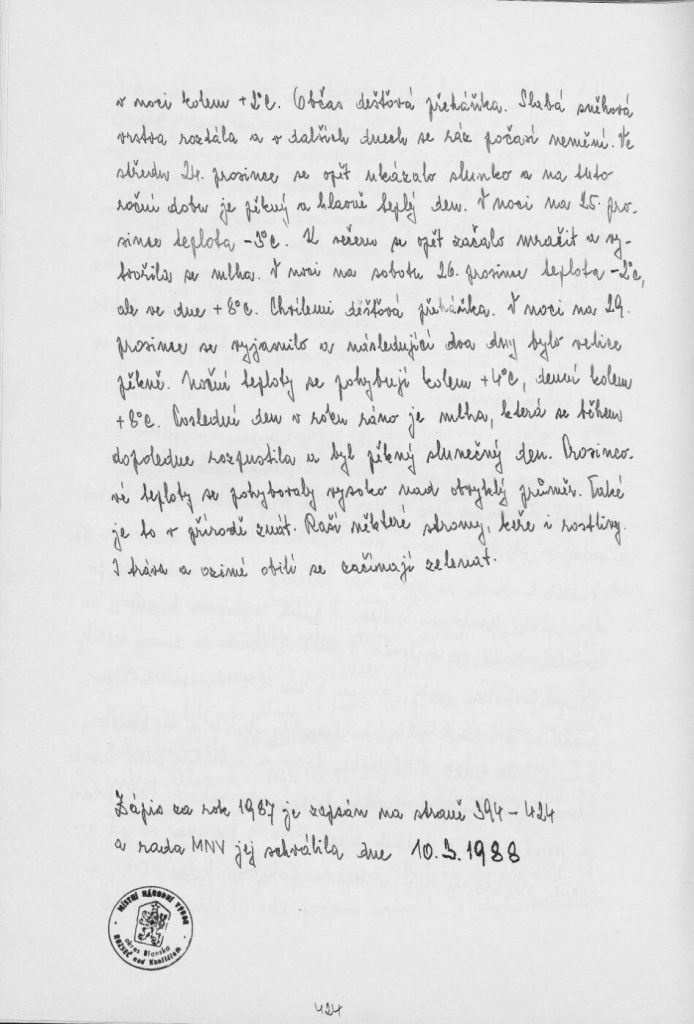 v noci kolem +2°C. Občas dešťová přeháňka. Slabá sněhová
vrstva roztála a v dalších dnech se ráz počasí nemění. Ve
středu 24. prosince se opět ukázalo slunko a na tuto
roční dobu je pěkný a hlavně teplý den. V noci na 25. pro-
since teplota -3°C. K večeru se opět začalo mračit a vy-
tvořila se mlha. V noci na sobotu 26. prosince teplota -2°C,
ale ve dne +8°C. Chvílemi dešťová přeháňka. V noci na 29.
prosince se vyjasnilo a následující dva dny bylo velice
pěkně. Noční teploty se pohybují kolem +4°C, denní kolem
+8°C. Poslední den v roku ráno je mlha, která se během
dopoledne rozpustila a byl pěkný slunečný den. Prosinco-
vé teploty se pohybovaly vysoko nad obvyklý průměr. Také
je to v přírodě znát. Raší některé stromy, keře i rostliny.
I tráva a ozimé obilí se začínají zelenat.
Zápis za rok 1987 je zapsán na straně 394-424
a rada MNV jej schválila dne 10.3.1988
MÍSTNÍ NÁRODNÍ VÝBOR
okres Blansko
ROZSEČ nad Kunštátem
424